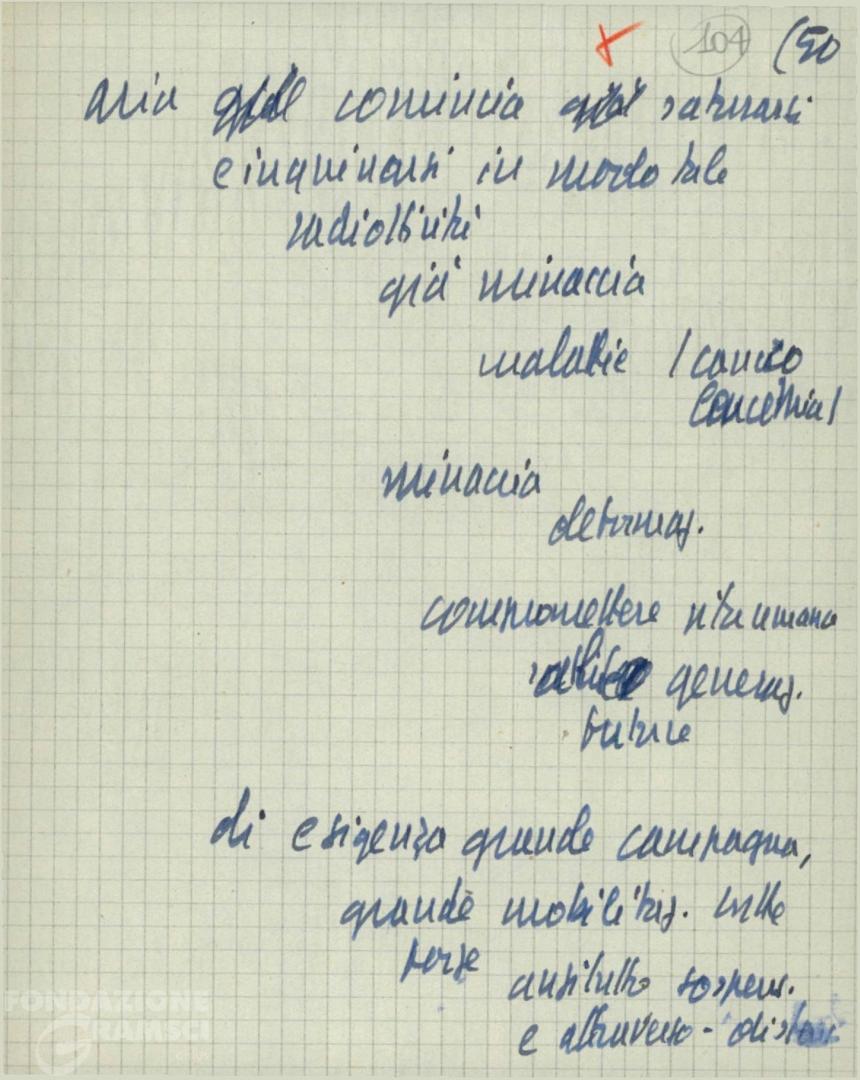 104 (50
aria già comincia già saturarsi
e inquinarsi in modo tale
radioattività
già minaccia
malattie / cancro
leucemia /
minaccia
deformaz.
compromettere vita umana
generaz.
future
di esigenza grande campagna,
grande mobilitaz. tutte
forze
anzitutto sospens.
e attraverso -
FONDAZIONE
GRAMSCI